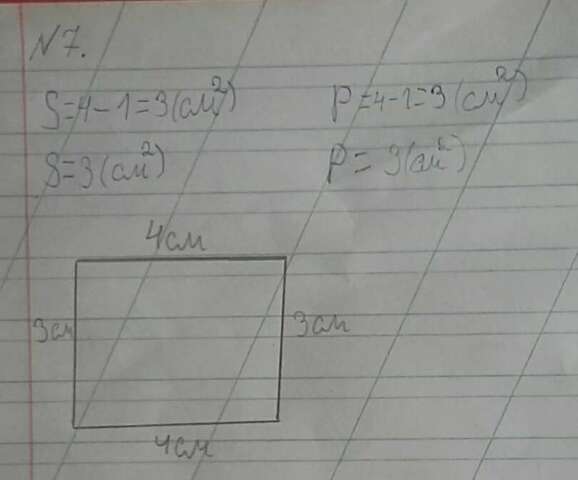 N7.
S=4-1=3(см²)
P=4-1=3(см²)
S=3(см²)
P=3(см²)
4см
3см
3см
4см